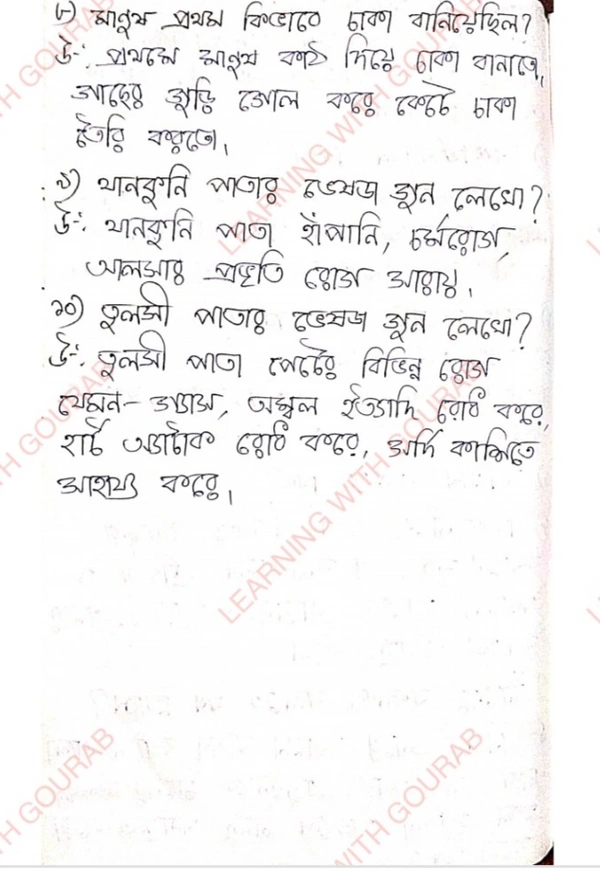 ৮) মানুষ প্রথম কিভাবে চাকা বানিয়েছিল?
উঃ- প্রথমে মানুষ কাঠ দিয়ে চাকা বানাতো,
গাছের গুড়ি গোল করে কেটে চাকা
তৈরি করতো।
৯) থানকুনি পাতার ভেষজ গুন লেখো?
উঃ- থানকুনি পাতা হাঁপানি, চর্মরোগ,
আলসার প্রভৃতি রোগ সারায়।
১০) তুলসী পাতার ভেষজ গুন লেখো?
উঃ- তুলসী পাতা পেটের বিভিন্ন রোগ
যেমন- গ্যাস, অম্বল ইত্যাদি রোধ করে,
হার্ট অ্যাটাক রোধ করে, সর্দি কাশিতে
সাহায্য করে।
LEARNING WITH GOURAB
LEARNING WITH GOURAB
WITH GOURAB